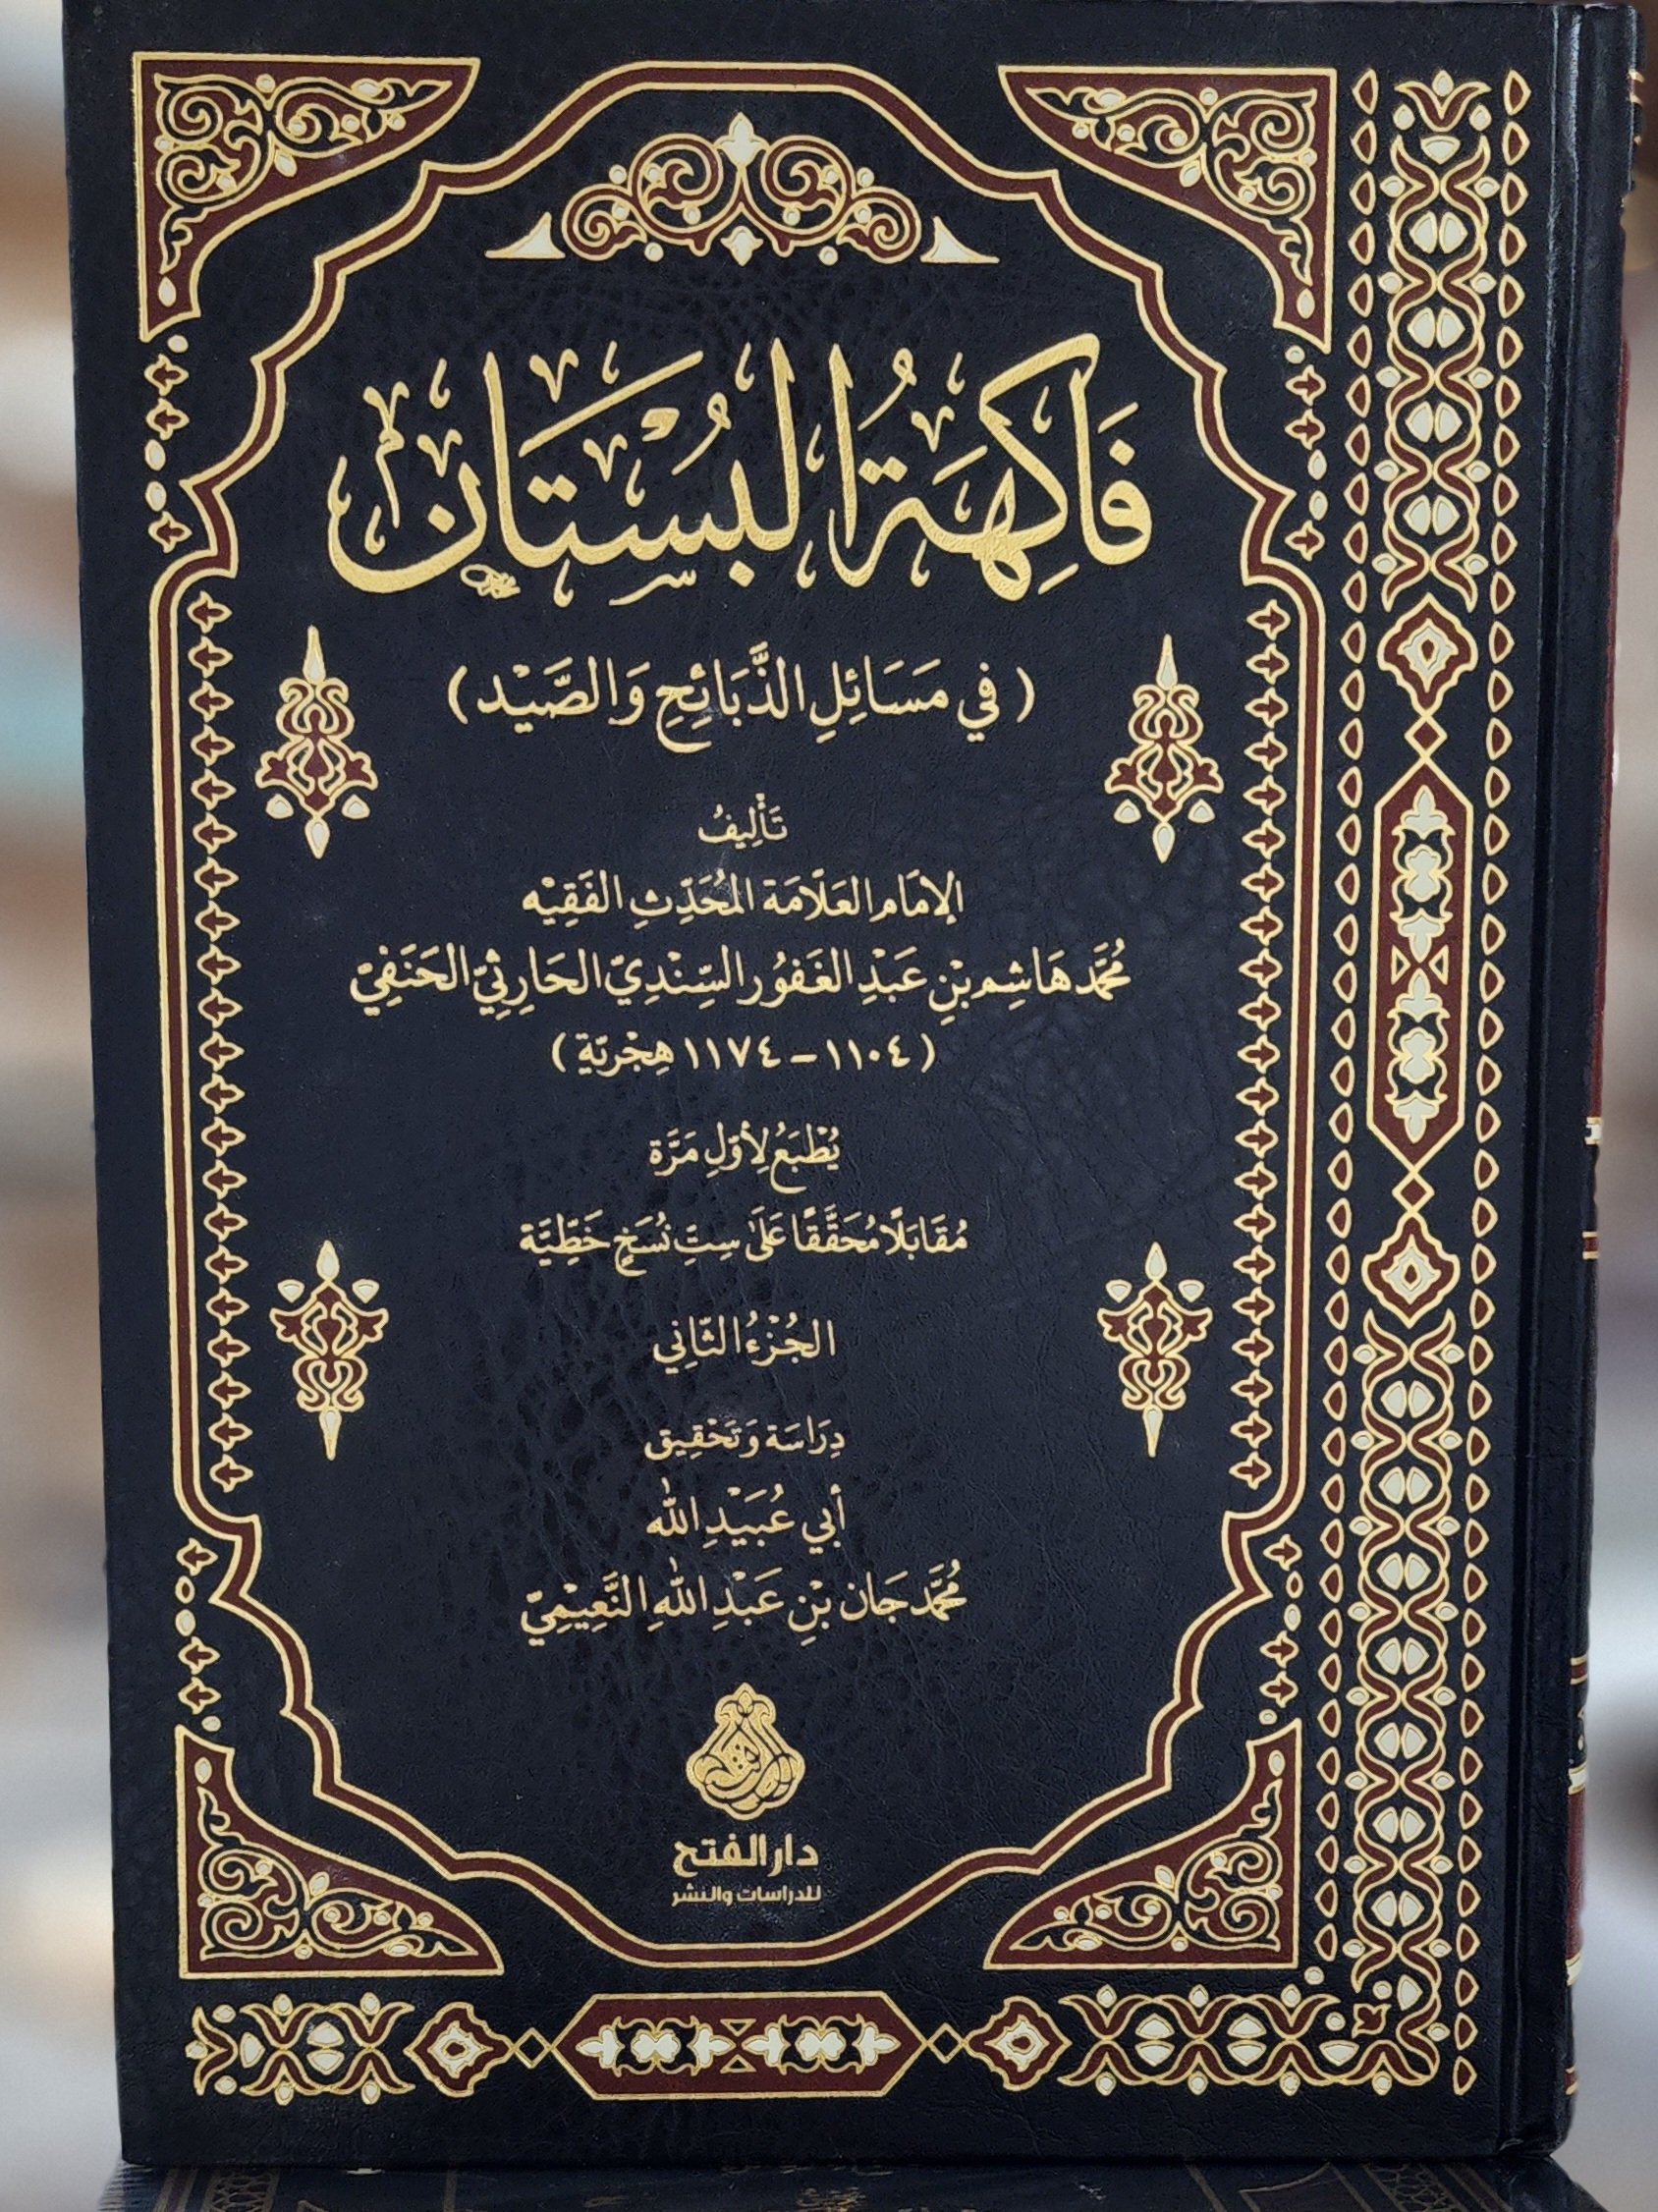 فَاكِهَةُ البُسْتَانِ
(فِي مَسَائِلِ الذَّبَائِحِ وَالصَّيْد)
تَأْلِيفُ
الإِمَام العَلَّامَة المُحَدِّثِ الفَقِيْه
مُحَمَّد هَاشِم بْنِ عَبْدِ الغَفُور السِّنْدِيّ الحَارِثِيّ الحَنَفِيّ
(١١٠٤ – ١١٧٤ هِجْرِيّة)
يُطْبَعُ لِأَوَّلِ مَرَّة
مُقَابَلًا مُحَقَّقًا عَلَى سِتِّ نُسَخٍ خَطِّيَّة
الجُزْءُ الثَّانِي
دِرَاسَة وَتَحْقِيق
أَبِي عُبَيْدِ اللّٰه
مُحَمَّد جَان بْنِ عَبْدِ اللّٰهِ النَّعِيْمِيّ
دار الفتح
للدراسات والنشر